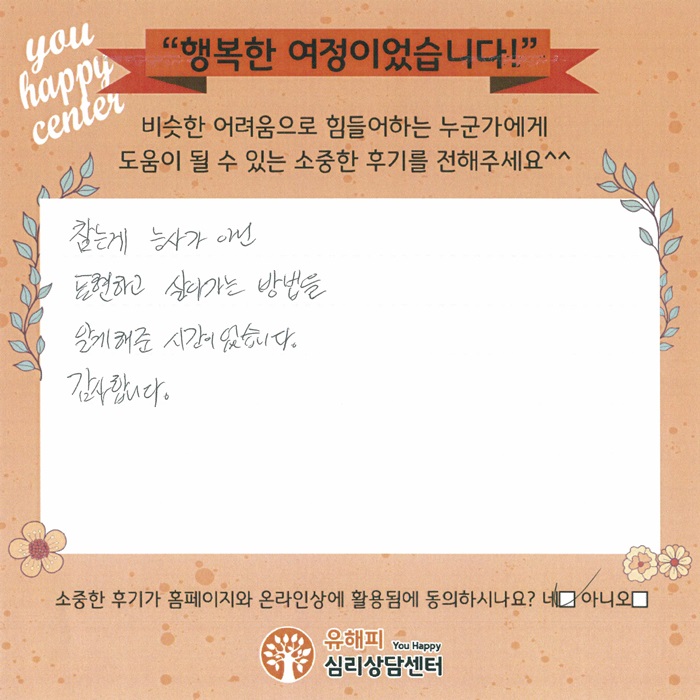 you
happy
center
“행복한 여정이었습니다!”
비슷한 어려움으로 힘들어하는 누군가에게
도움이 될 수 있는 소중한 후기를 전해주세요^^
참는게 능사가 아닌
표현하고 살아가는 방법을
알게해준 시간이었습니다.
감사합니다.
소중한 후기가 홈페이지와 온라인상에 활용됨에 동의하시나요? 네 아니오
유해피 You Happy
심리상담센터